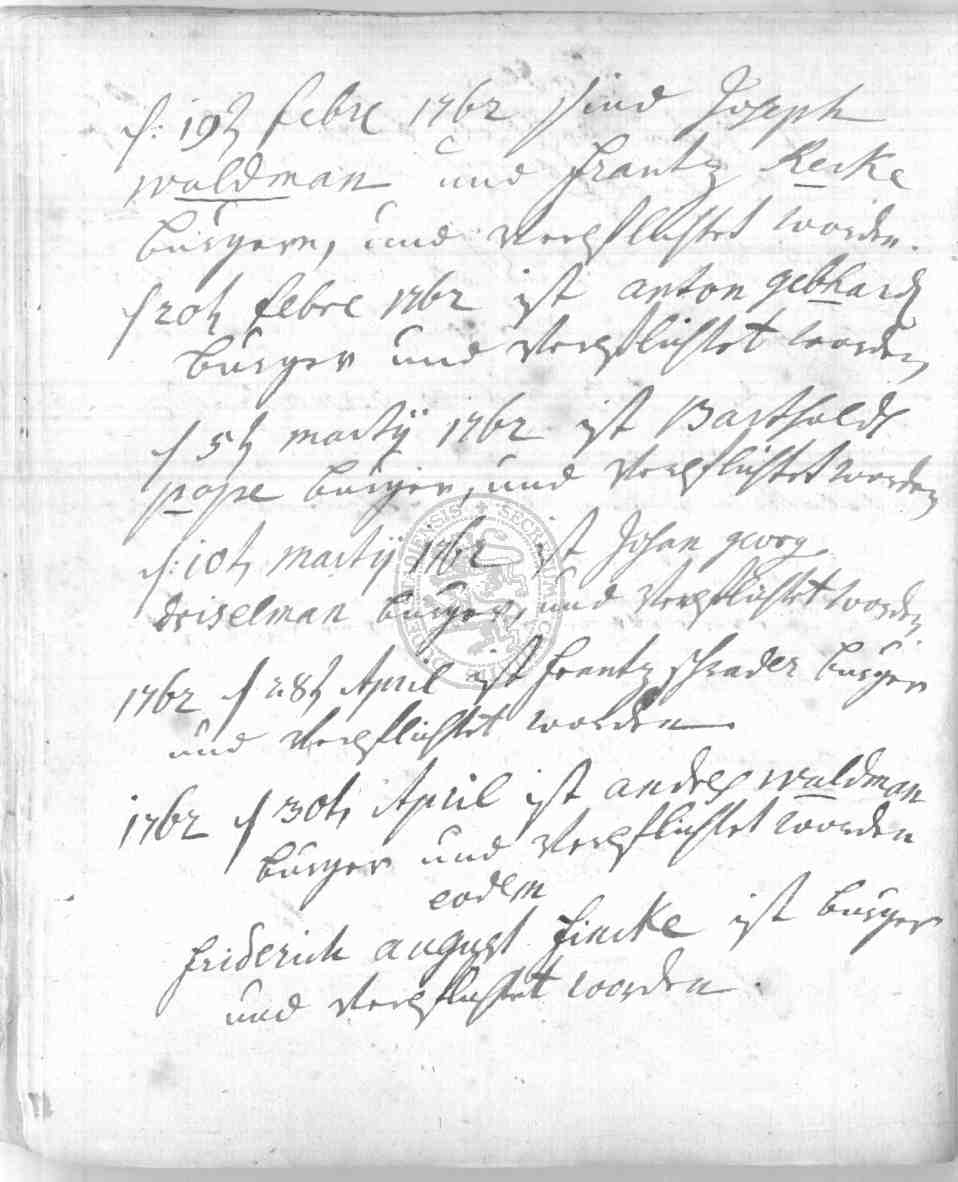 d: 19t febre 1762 sind Joseph
waldman und frantz Recke
burgern, und verpflichtet worden.
d 20t febre 1762 ist anton gebhard
burger und verpflichtet worden
d 5t martij 1762 ist Barthold
pape burger, und verpflichtet worden
d: 10t martij 1762 ist Johan georg
driselman burger, und verpflichtet worden
1762 d 28t April ist frantz schrader burger
und verpflichtet worden
1762 d 30t April ist andres waldman
burger und verpflichtet worden
eodem
friderich august fincke ist burger
und verpflichtet worden.
SECRETUM